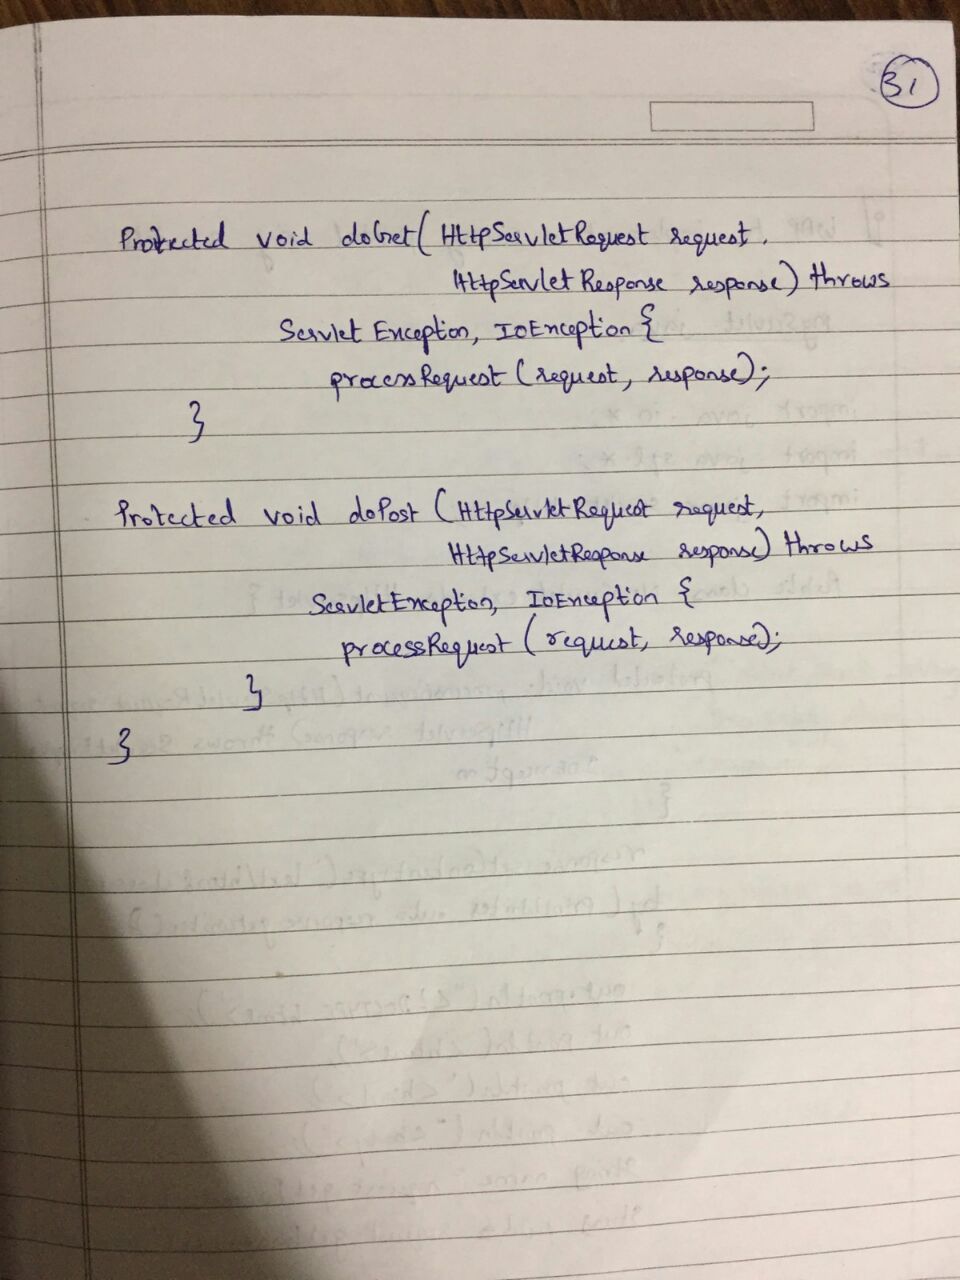 31
Protected void doGet( HttpServletRequest request,
HttpServlet Response response) throws
Servlet Exception, IoException {
processRequest (request, response);
}
Protected void doPost (HttpServletRequest request,
HttpServletResponse response) throws
ServletException, IoException {
processRequest (request, response);
}
}